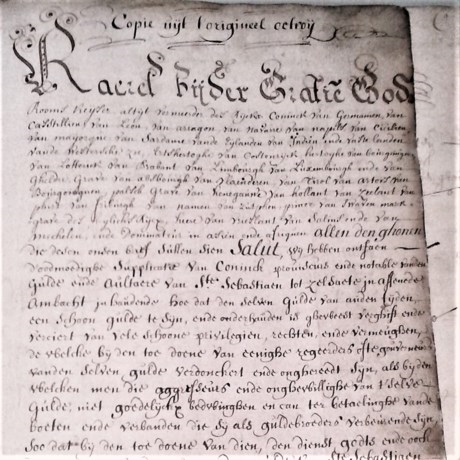 Copie uijt t origineel octroij
Kaerel bijder Gratie Gods
Rooms Keyser altyt vermeerder des Rycks Coninck van Germanien van
Castillien van Leon van arragon van Navarre van napels van Cicilien
van mayorque van Sardaine vande Eylanden van Indien ende vaste landen
vande zee, Eertshertoghe van Oostenryck hertoghe van bourgoignen
van Lotteryck van Brabant van Limbourgh van Luxembourgh ende van
Ghelder Grave van absbourgh van vlaenderen van Tirol van artois van
Bourgoignen palsgrave van henegauwe van hollant van zeelant van
van namen van Zutphen prince van Swaven mark-
grave des h. Rycks heere van vrieslant van Salins ende van
Mechelen ende dominateur in asien ende afriquen allen den ghonen
die desen onsen brief sullen sien Salut, wy hebben ontfaen
oodmoedighe Supplicatie van Coninck proviseurs ende notable vanden
Gulde ende aultaere van Ste Sebastiaen tot zelsaete in assenede
Ambacht inhaudende hoe dat den selven Gulde van auden tyden
een schoon gulde te syn, ende onderhauden is gheweest verghift ende
verciert van vele schoone privilegien, rechten, ende vermeughen,
de welcke by den toe doene van eenighe regeerders ofte gouverneurs
vanden selven gulde verdonckert ende onghereedt syn, als by den
welcken men die aggresseurs ende onghewillighe van t'selve
Gulde niet goedelyck bedwinghen en can ter betaelinghe vande
boeten ende verbanden die sy als guldebroeders verbeurende syn,
soo dat by den toe doene van dien, den dienst godts ende oock
Ste Sebastiaen